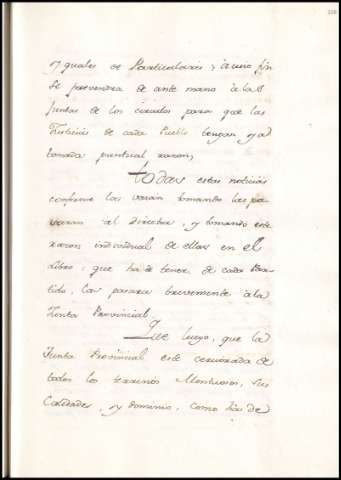 y quales de Particulares; à cuio fin
se prevendra de ante mano à las
Juntas de los circulos para que las
Justicias de cada Pueblo tengan ya
tomada puntual razon;
todas estas noticias
conforme las vaian tomando las pa-
saran al Director, y tomando este
razon individual de ellas en el
Libro, que ha de tener de cada Par-
tido, las pasara brevemente à la
Junta Provincial,
Que luego, que la
Junta Provincial esté cerciorada de
todos los terrenos Montuosos, sus
Calidades, y dominio, como han de